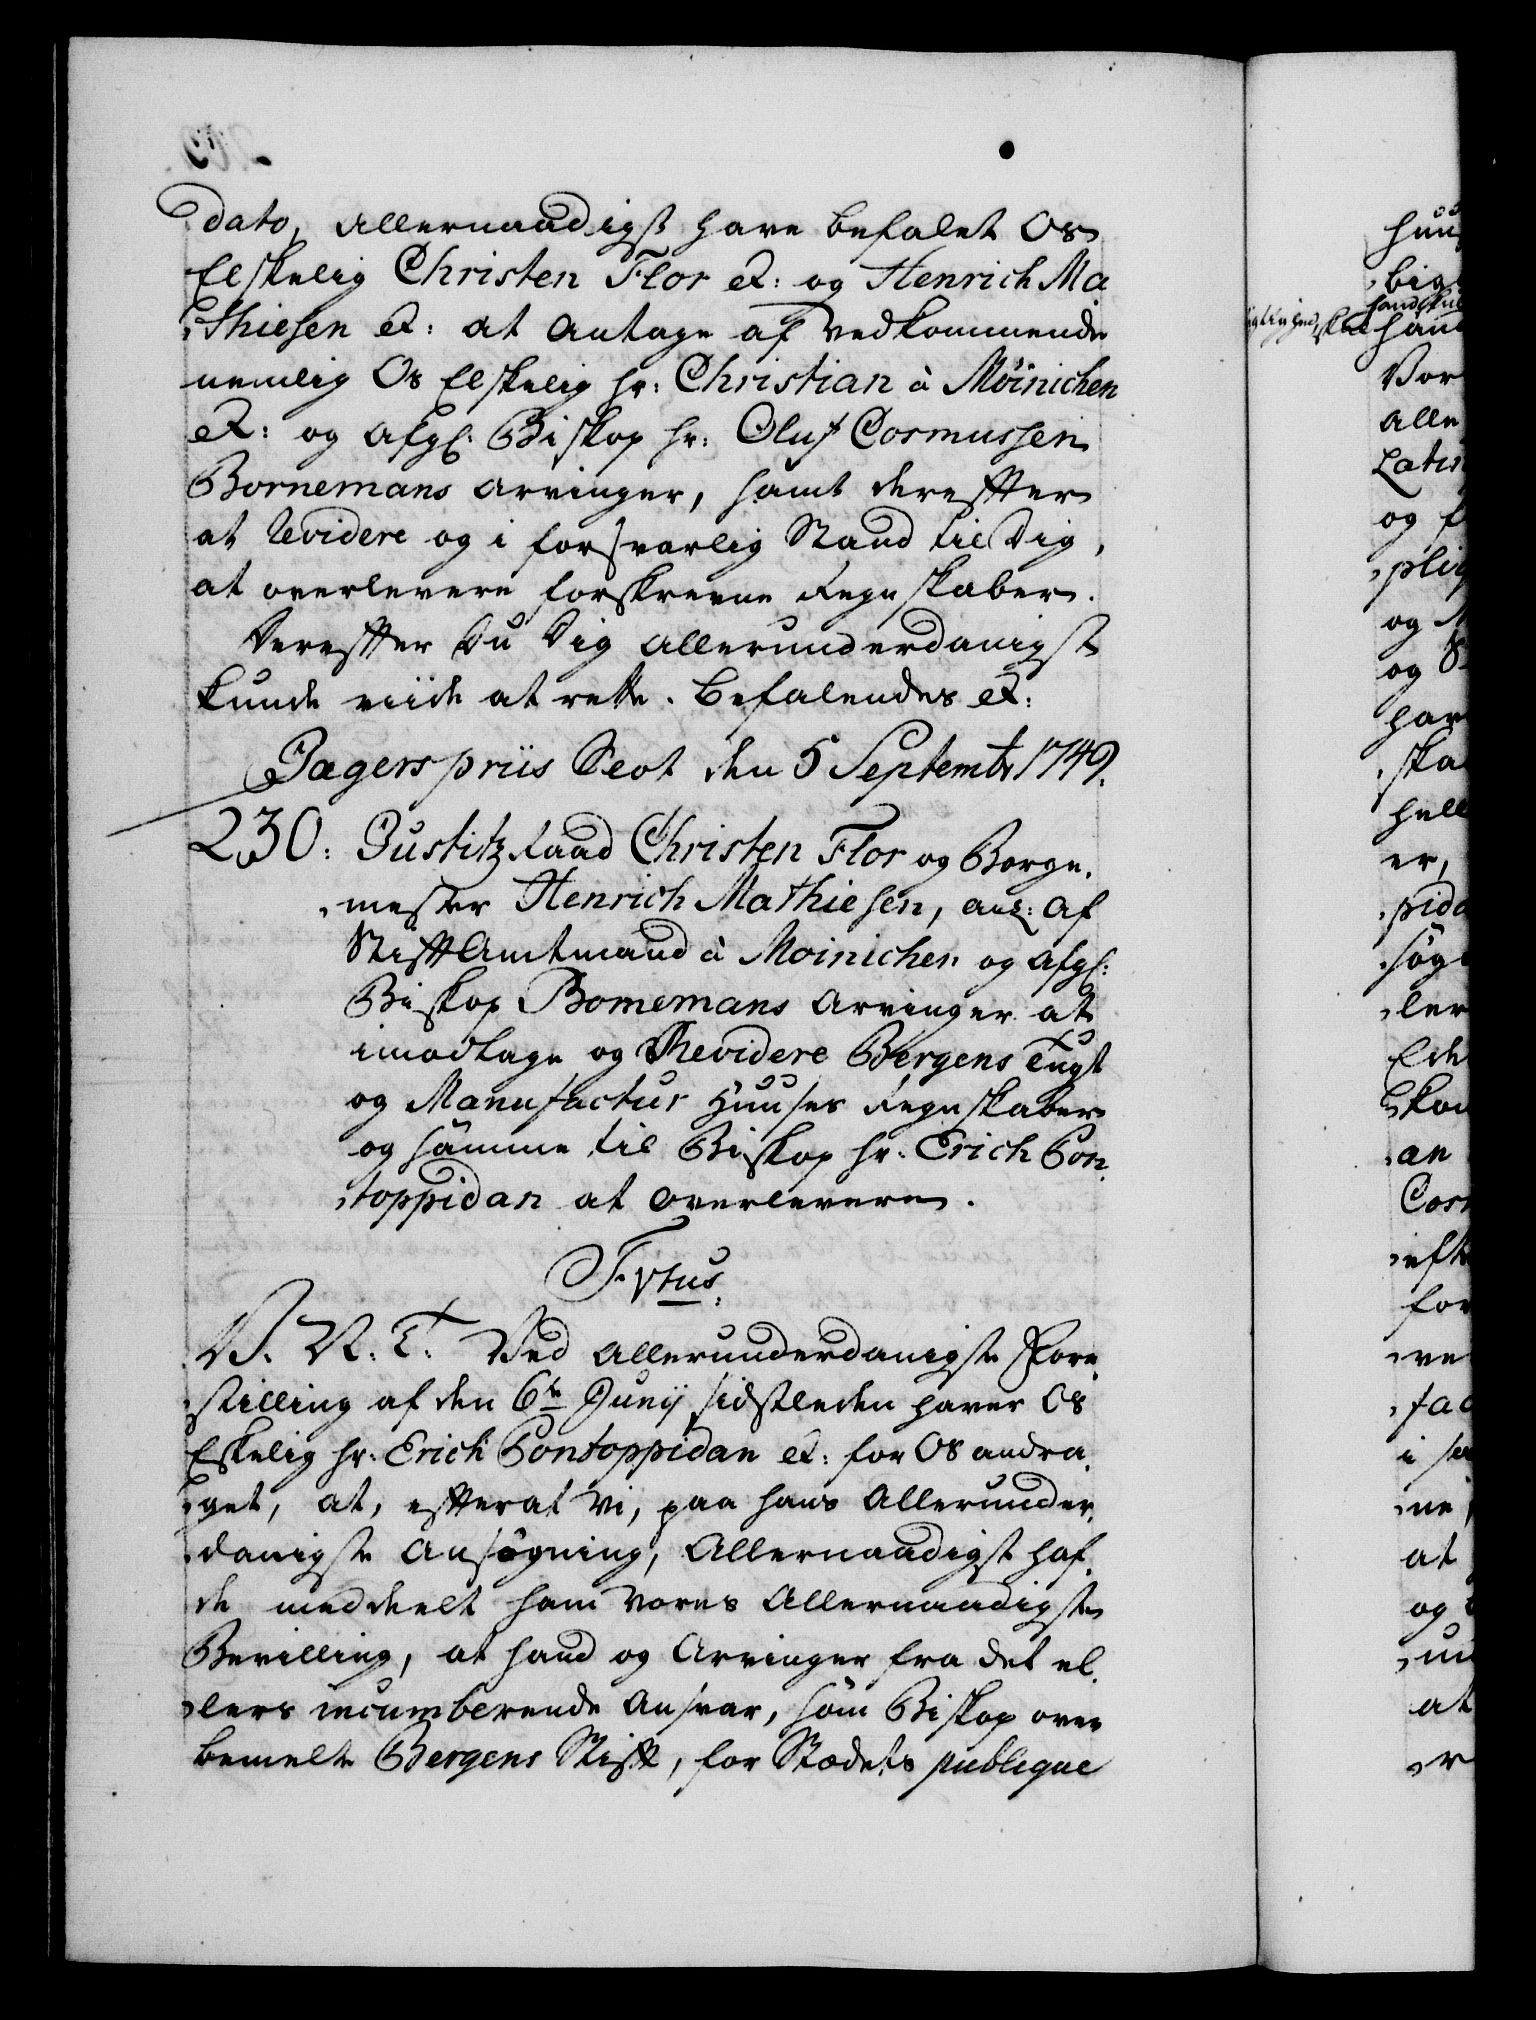 dato, Allernaadigst have befalet Os
Elskelig Christen Flor &: og Henrich Ma
thiesen &: at Antage af Vedkommende
nemlig Os Elskelig hr: Christian à Möinichen
&: og Afgl: Biskop hr: Oluf Cosmussen
Bornemans Arvinger, samt derefter
at Revidere og i forsvarlig Stand til Dig,
at overlevere forskrevne Regnskaber.
Derefter Du Dig allerunderdanigst
kunde viide at rette. Befalendes &:
Jagerspriis Slot den 5 Septembr 1749.
230: Justitz Raad Christen Flor og Borge,
mester Henrich Mathiesen, ang: Af
Stift Amtmand à Moinichen og Afgl:
Biskop Bornemans Arvinger at
imodtage og Revidere Bergens Tugt
og Manufactur Huuses Regnskaber
og samme til Biskop hr: Erich Pon,
toppidan at overlevere.
F. Vtus.
V. V. T. Ved Allerunderdanigste Fore,
stilling af den 6te Junij sidstleden haver Os
Elskelig hr: Erich Pontoppidan &: for Os andra,
get, at, efterat Vi, paa hans Allerunder,
danigste Ansøgning, Allernaadigst haf,
de meddeelt ham Vores Allernaadigste
Bevilling, at hand og Arvinger fra det el,
lers incumberende Ansvar, som Biskop over
bemelte Bergens Stift, for Stædets publique